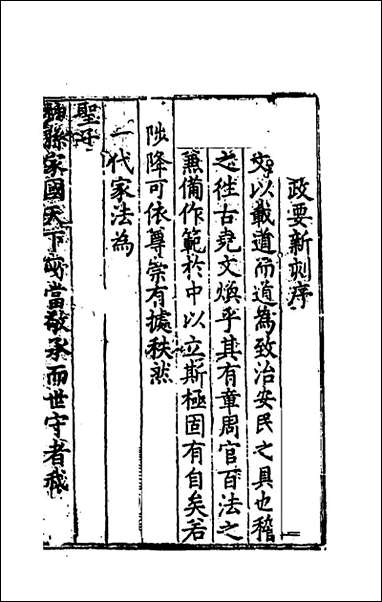 政要新刻序
文以載道而道為致治安民之具也稽
之徃古堯文煥乎其有章周官百法之
兼備作範於中以立斯極固有自矣若
陟降可依尊崇有據秩然
一代家法為
聖子
神孫家國天下所當敬承而世守者哉
一